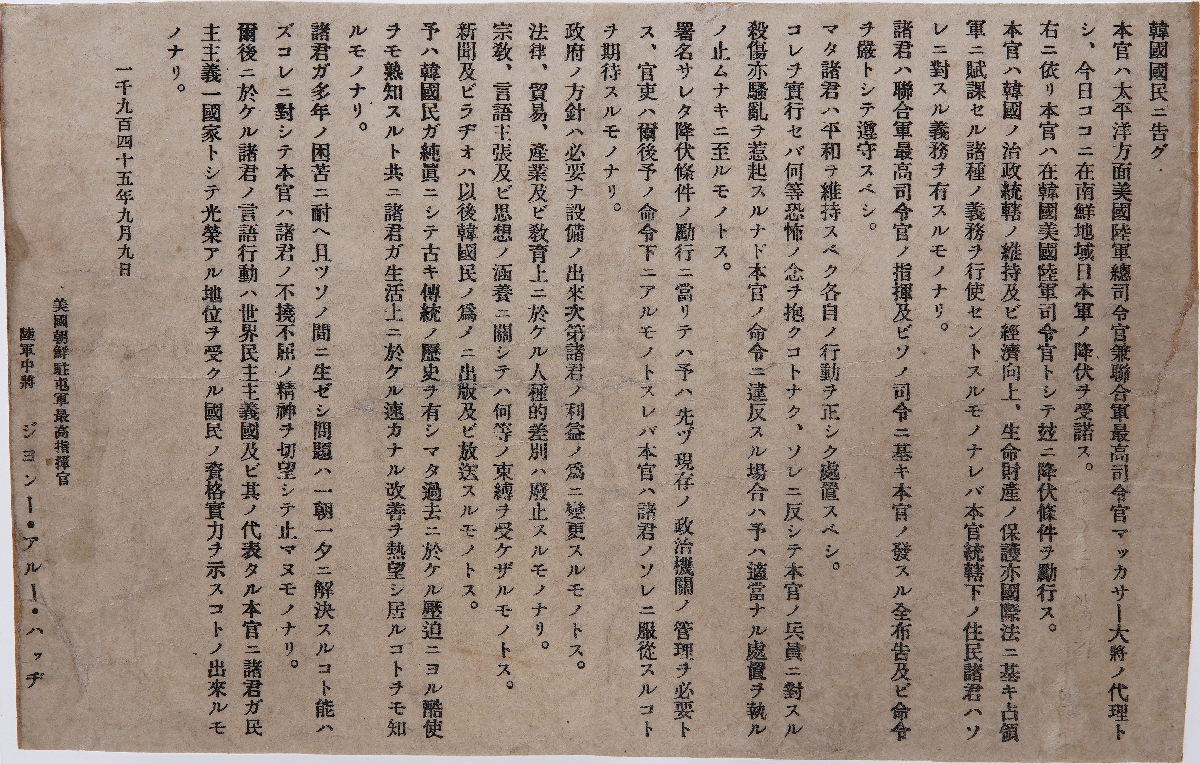 韓國國民ニ告グ
本官ハ太平洋方面美國陸軍總司令官兼聯合軍最高司令官マッカサー大將ノ代理ト
シ、今日ココニ在南鮮地域日本軍ノ降伏ヲ受諾ス。
右ニ依リ本官ハ在韓國美國陸軍司令官トシテ玆ニ降伏條件ヲ勵行ス。
本官ハ韓國ノ治政統轄ノ維持及ビ經濟向上、生命財產ノ保護亦國際法ニ基キ占領
軍ニ賦課セル諸種ノ義務ヲ行使セントスルモノナレバ本官統轄下ノ住民諸君ハソ
レニ對スル義務ヲ有スルモノナリ。
諸君ハ聯合軍最高司令官ノ指揮及ビソノ司令ニ基キ本官ノ發スル全布告及ビ命令
ヲ嚴トシテ遵守スベシ。
マタ諸君ハ平和ヲ維持スベク各自ノ行動ヲ正シク處置スベシ。
コレヲ實行セバ何等恐怖ノ念ヲ抱クコトナク、ソレニ反シテ本官ノ兵員ニ對スル
殺傷亦騷亂ヲ惹起スルナド本官ノ命令ニ違反スル場合ハ予ハ適當ナル處置ヲ執ル
ノ止ムナキニ至ルモノトス。
署名サレタ降伏條件ノ勵行ニ當リテハ予ハ先ヅ現存ノ政治機關ノ管理ヲ必要ト
ス、官吏ハ爾後予ノ命令下ニアルモノトスレバ本官ハ諸君ノソレニ服從スルコト
ヲ期待スルモノナリ。
政府ノ方針ハ必要ナ設備ノ出來次第諸君ノ利益ノ爲ニ變更スルモノトス。
法律、貿易、產業及ビ敎育上ニ於ケル人種的差別ハ廢止スルモノナリ。
宗敎、言語主張及ビ思想ノ涵養ニ關シテハ何等ノ束縛ヲ受ケザルモノトス。
新聞及ビラヂオハ以後韓國民ノ爲メニ出版及ビ放送スルモノトス。
予ハ韓國民ガ純眞ニシテ古キ傳統ノ歷史ヲ有シマタ過去ニ於ケル壓迫ニヨル酷使
ヲモ熟知スルト共ニ諸君ガ生活上ニ於ケル速カナル改善ヲ熱望シ居ルコトヲモ知
ルモノナリ。
諸君ガ多年ノ困苦ニ耐ヘ且ツソノ間ニ生ゼシ問題ハ一朝一夕ニ解決スルコト能ハ
ズコレニ對シテ本官ハ諸君ノ不撓不屈ノ精神ヲ切望シテ止マヌモノナリ。
爾後ニ於ケル諸君ノ言語行動ハ世界民主主義國及ビ其ノ代表タル本官ニ諸君ガ民
主主義一國家トシテ光榮アル地位ヲ受クル國民ノ資格實力ヲ示スコトノ出來ルモ
ノナリ。
一千九百四十五年九月九日
美國朝鮮駐屯軍最高指揮官
陸軍中將 ジョンー・アルー・ハッヂ